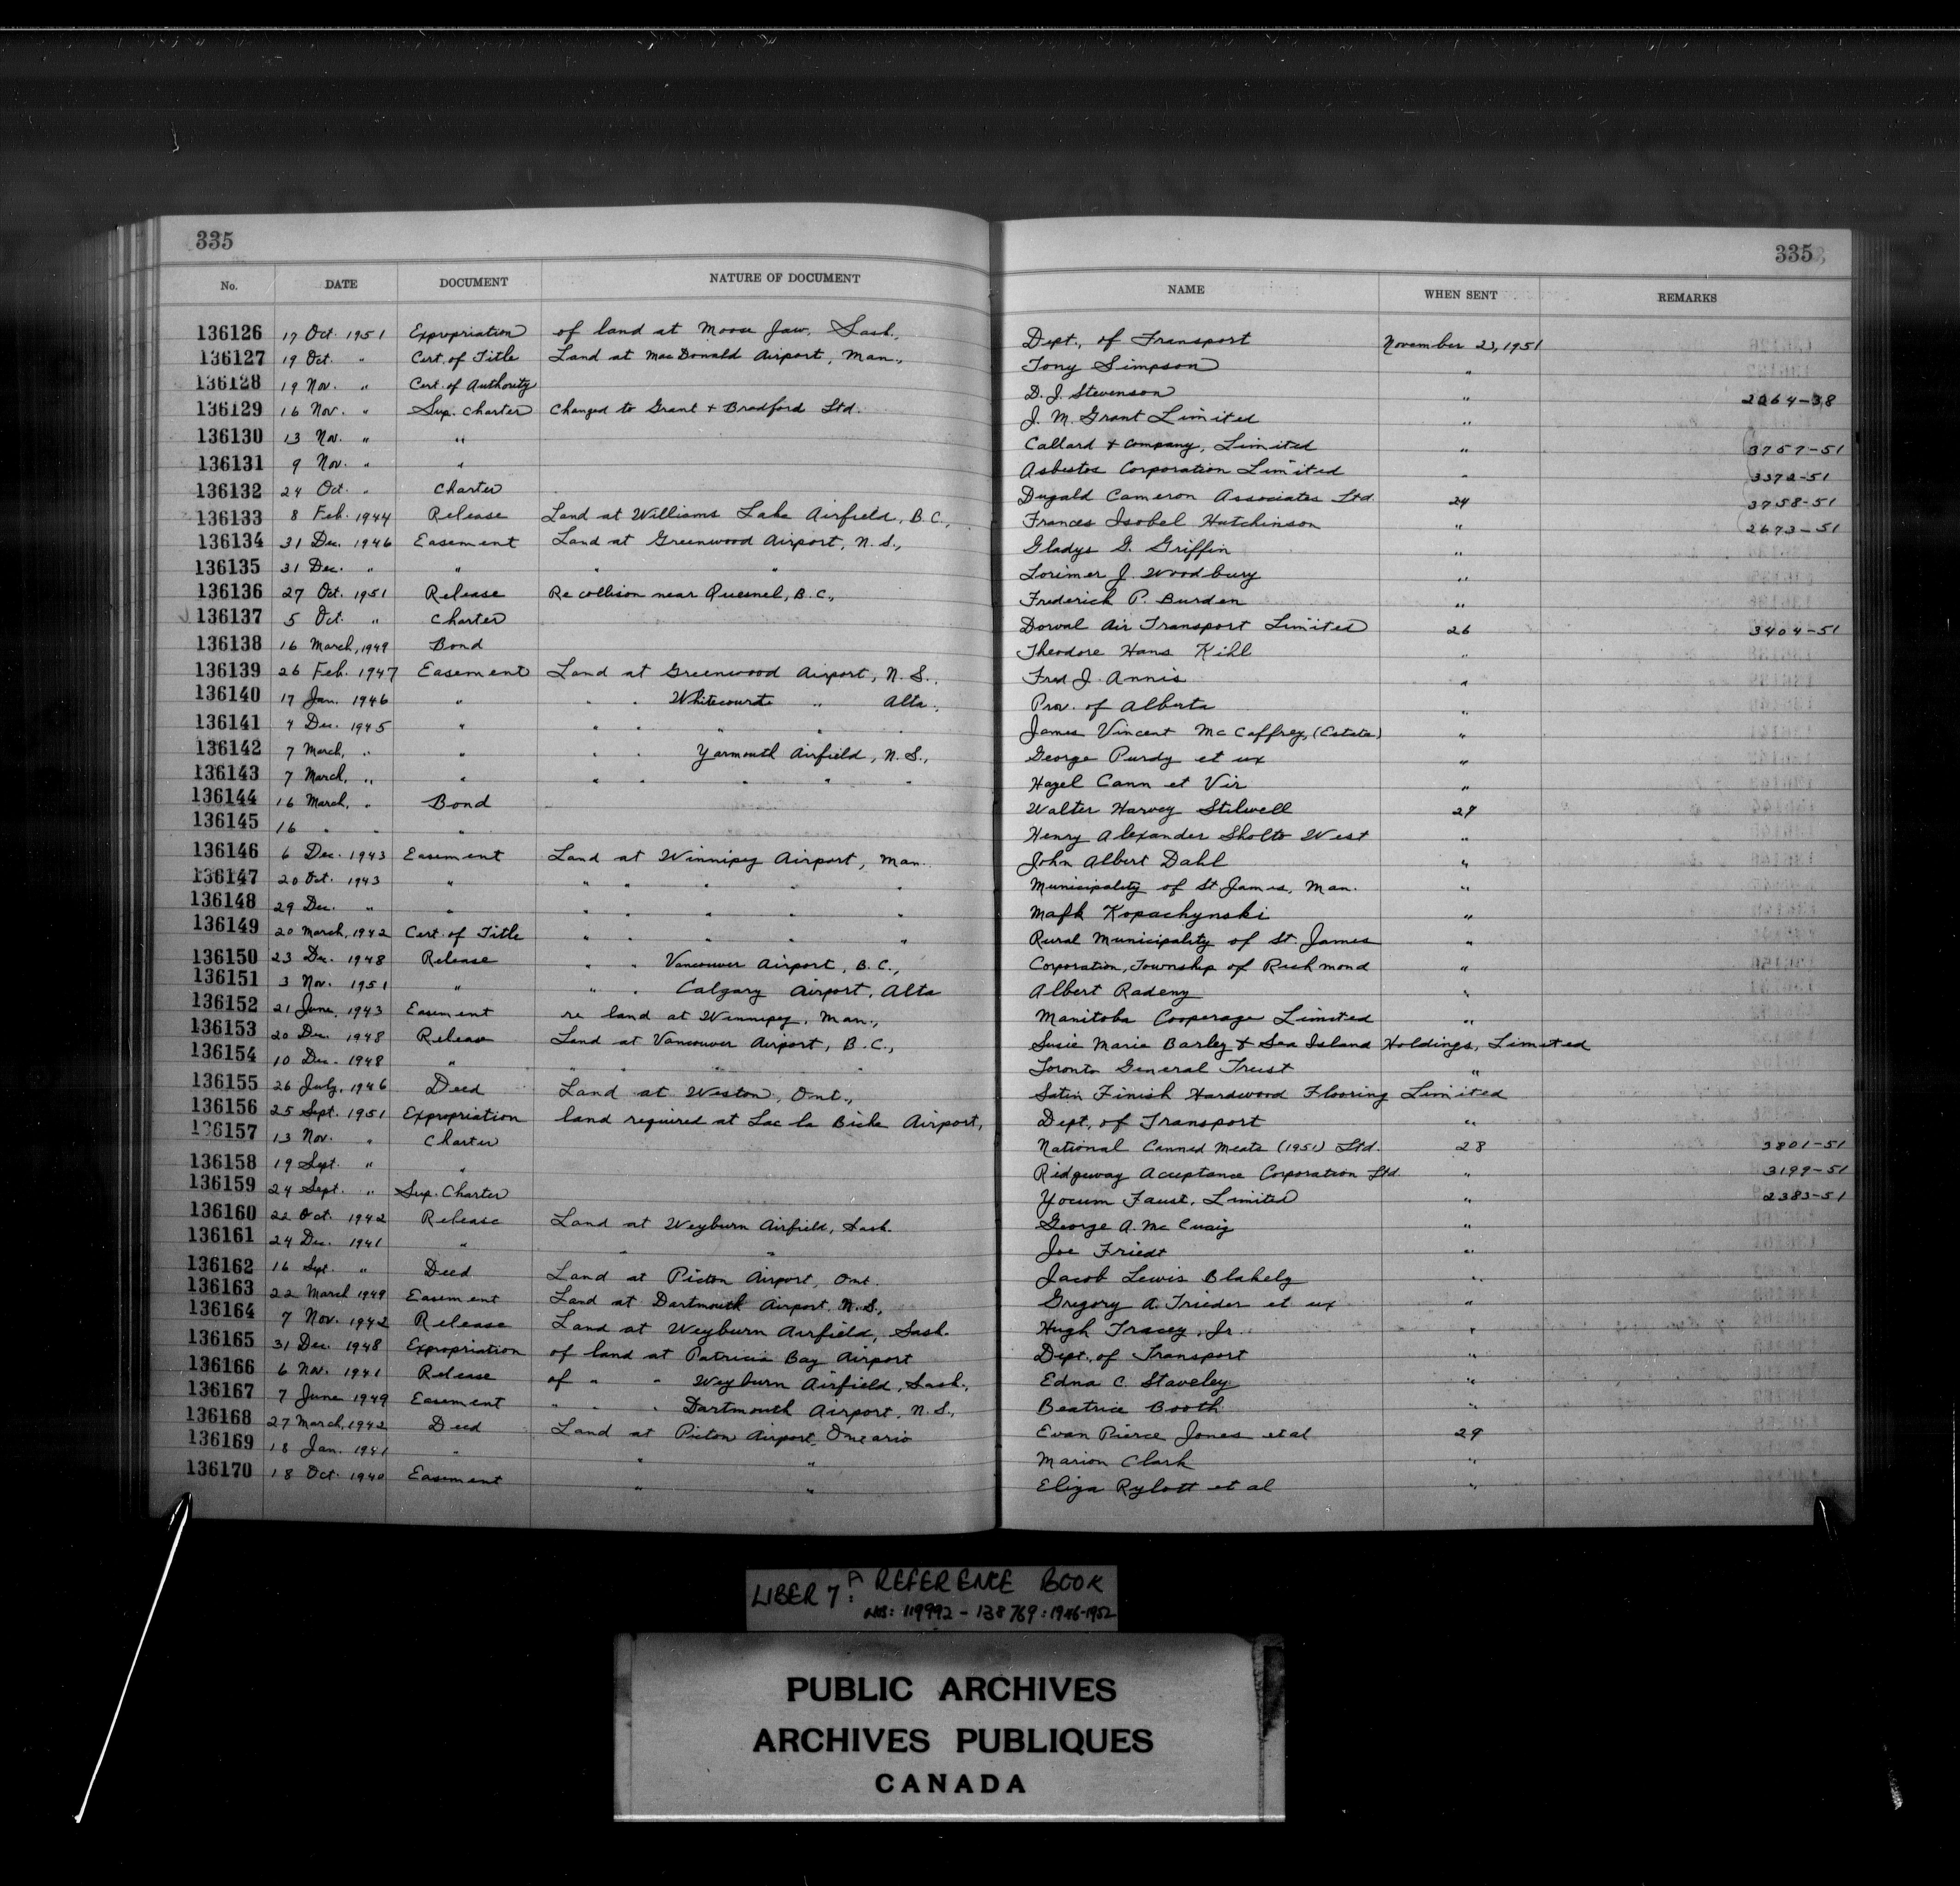 335 335
No. DATE DOCUMENT NATURE OF DOCUMENT NAME WHEN SENT REMARKS
136126 17 Oct. 1951 Expropriation of land at Moose Jaw, Sask., Dept. of Transport November 23, 1951
136127 19 Oct. " Cert. of Title Land at MacDonald Airport, Man., Tony Simpson "
136128 19 Nov. " Cert. of Authority D. J. Stevenson " 2264-38
136129 16 Nov. " Sup. Charter Changed to Grant & Bradford Ltd. J. M. Grant Limited "
136130 13 Nov. " " Callard & Company, Limited " 3757-51
136131 9 Nov. " " Asbestos Corporation Limited " 3372-51
136132 24 Oct. " Charter Dugald Cameron Associates Ltd. 24 3758-51
136133 8 Feb. 1944 Release Land at Williams Lake Airfield, B.C., Frances Isobel Hutchinson " 2673-51
136134 31 Dec. 1946 Easement Land at Greenwood Airport, N.S., Gladys G. Griffin "
136135 31 Dec. " " " " Lorimer J. Woodbury "
136136 27 Oct. 1951 Release Re collison near Quesnel, B.C., Frederick P. Burden "
136137 5 Oct. " Charter Dorval Air Transport Limited 26 3404-51
136138 16 March, 1949 Bond Theodore Hans Kihl "
136139 26 Feb. 1947 Easement Land at Greenwood Airport, N.S., Fred J. Annis "
136140 17 Jan. 1946 " " " Whitecourt " Alta. Prov. of Alberta "
136141 4 Dec. 1945 " " " " " " James Vincent McCaffrey, (Estate) "
136142 7 March, " " " " Yarmouth Airfield, N.S., George Purdy et ux "
136143 7 March, " " " " " " " Hazel Cann et Vir "
136144 16 March, " Bond Walter Harvey Stilwell 27
136145 16 " " " Henry Alexander Sholto West "
136146 6 Dec. 1943 Easement Land at Winnipeg Airport, Man. John Albert Dahl "
136147 20 Oct. 1943 " " " " " " Municipality of St. James, Man. "
136148 29 Dec. " " " " " " " Kopachynski "
136149 20 March, 1942 Cert. of Title " " " " " Rural Municipality of St. James "
136150 23 Dec. 1948 Release " " Vancouver Airport, B.C., Corporation, Township of Richmond "
136151 3 Nov. 1951 " " " Calgary Airport, Alta Albert Radeny "
136152 21 June, 1943 Easement re land at Winnipeg, Man., Manitoba Cooperage Limited "
136153 20 Dec. 1948 Release Land at Vancouver Airport, B.C., Susie Marie Barley & Sea Island Holdings, Limited
136154 10 Dec. 1948 " " " " " " Toronto General Trust "
136155 26 July, 1946 Deed Land at Weston, Ont., Satin Finish Hardwood Flooring Limited
136156 25 Sept. 1951 Expropriation land required at Lac la Biche Airport, Dept. of Transport "
136157 13 Nov. " Charter National Canned Meats (1951) Ltd. 28 3801-51
136158 19 Sept. " " Ridgeway Acceptance Corporation Ltd. " 3199-51
136159 24 Sept. " Sup. Charter Yocum Faust, Limited " 2383-51
136160 22 Oct. 1942 Release Land at Weyburn Airfield, Sask. George A. McCuaig "
136161 24 Dec. 1941 " " " Joe Friedt "
136162 16 Sept. " Deed Land at Picton Airport, Ont. Jacob Lewis Blakely "
136163 22 March 1949 Easement Land at Dartmouth Airport, N.S., Gregory A. Trieder et ux "
136164 7 Nov. 1942 Release Land at Weyburn Airfield, Sask. Hugh Tracey, Jr. "
136165 31 Dec. 1948 Expropriation of land at Patricia Bay Airport Dept. of Transport "
136166 6 Nov. 1941 Release of " " Weyburn Airfield, Sask., Edna C. Staveley "
136167 7 June 1949 Easement " " " Dartmouth Airport, N.S., Beatrice Booth "
136168 27 March, 1942 Deed Land at Picton Airport, Ontario Evan Pierce Jones et al 29
136169 18 Jan. 1941 " " " Marion Clark "
136170 18 Oct. 1940 Easement " " Eliza Rylott et al "
LIBER 7: A REFERENCE BOOK
NOS: 119992 - 138769: 1946-1952
PUBLIC ARCHIVES
ARCHIVES PUBLIQUES
CANADA